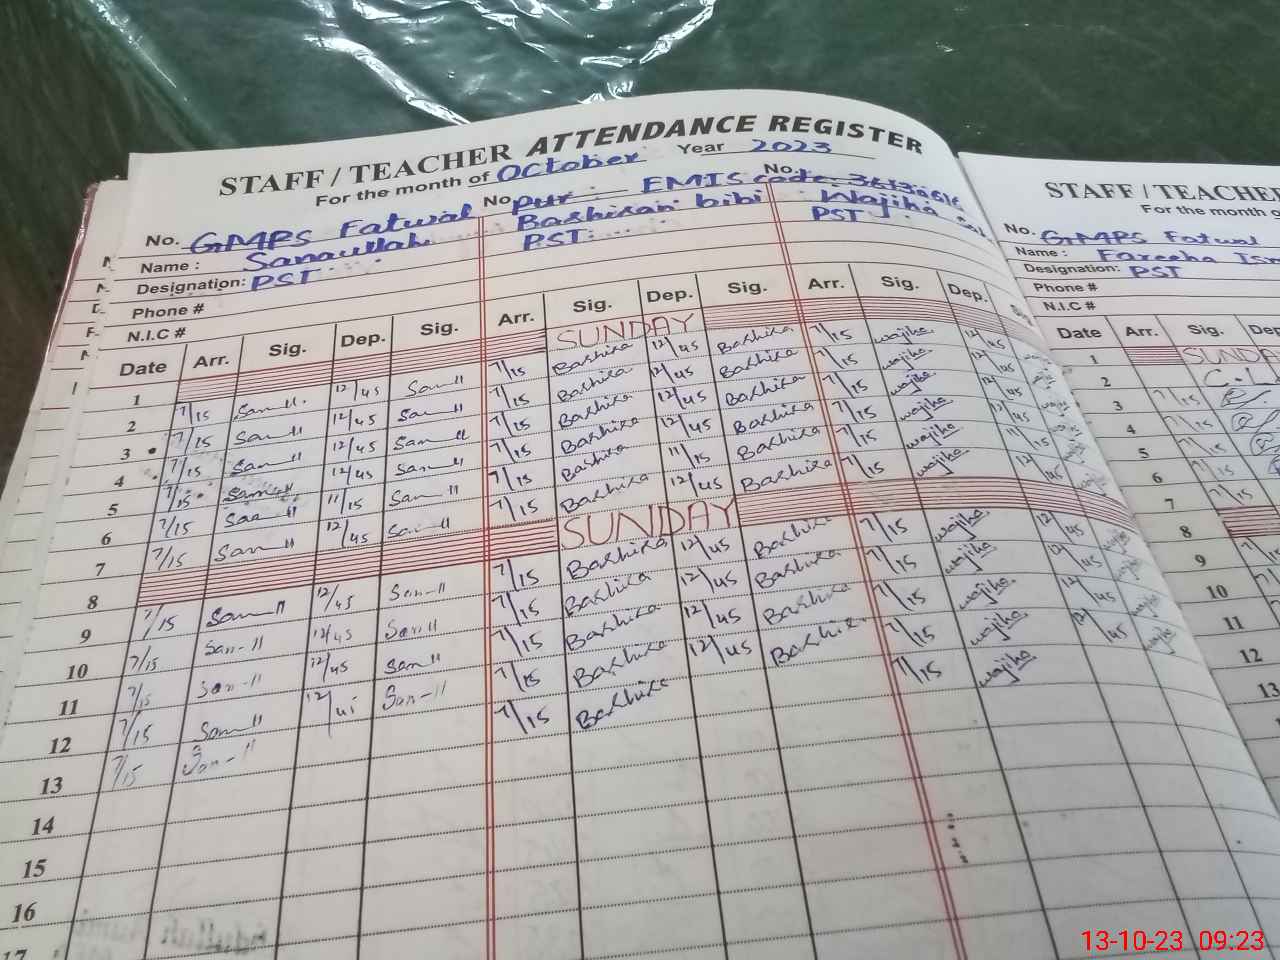 STAFF / TEACHER ATTENDANCE REGISTER
For the month of October Year 2023
No. GMPS Fatwal No. pur EMIS code No.
Name : Sanaullah Bashiran bibi Wajiha
Designation: PST PST: PST
Phone #
N.I.C #
Date Arr. Sig. Dep. Sig. Arr. Sig. Dep. Sig. Arr. Sig. Dep.
1 SUNDAY
2 7/15 San-ll 12/45 San-ll 7/15 Bashira 12/45 Bashira 7/15 wajiha 12/45
3 7/15 San-ll 12/45 San-ll 7/15 Bashira 12/45 Bashira 7/15 wajiha 12/45
4 7/15 San-ll 12/45 San-ll 7/15 Bashira 12/45 Bashira 7/15 wajiha 12/45
5 7/15 San-ll 12/45 San-ll 7/15 Bashira 12/45 Bashira 7/15 wajiha 12/45
6 7/15 San-ll 11/15 San-ll 7/15 Bashira 11/15 Bashira 7/15 wajiha 11/15
7 7/15 San-ll 12/45 San-ll 7/15 Bashira 12/45 Bashira 7/15 wajiha 12/45
8 SUNDAY
9 7/15 San-ll 12/45 San-ll 7/15 Bashira 12/45 Bashira 7/15 wajiha 12/45
10 7/15 San-ll 12/45 San-ll 7/15 Bashira 12/45 Bashira 7/15 wajiha 12/45
11 7/15 San-ll 12/45 San-ll 7/15 Bashira 12/45 Bashira 7/15 wajiha 12/45
12 7/15 San-ll 12/45 San-ll 7/15 Bashira 12/45 Bashira 7/15 wajiha 12/45
13 7/15 San-ll 7/15 Bashira 7/15 wajiha
14
15
16
17
STAFF / TEACHER
For the month
No. GMPS Fatwal
Name : Fareeha
Designation: PST
Phone #
N.I.C #
Date Arr. Sig.
1 SUNDAY
2 C.L
3 7/15
4 7/15
5 7/15
6 7/15
7 7/15
8
9
10
11
12
13
13-10-23 09:23